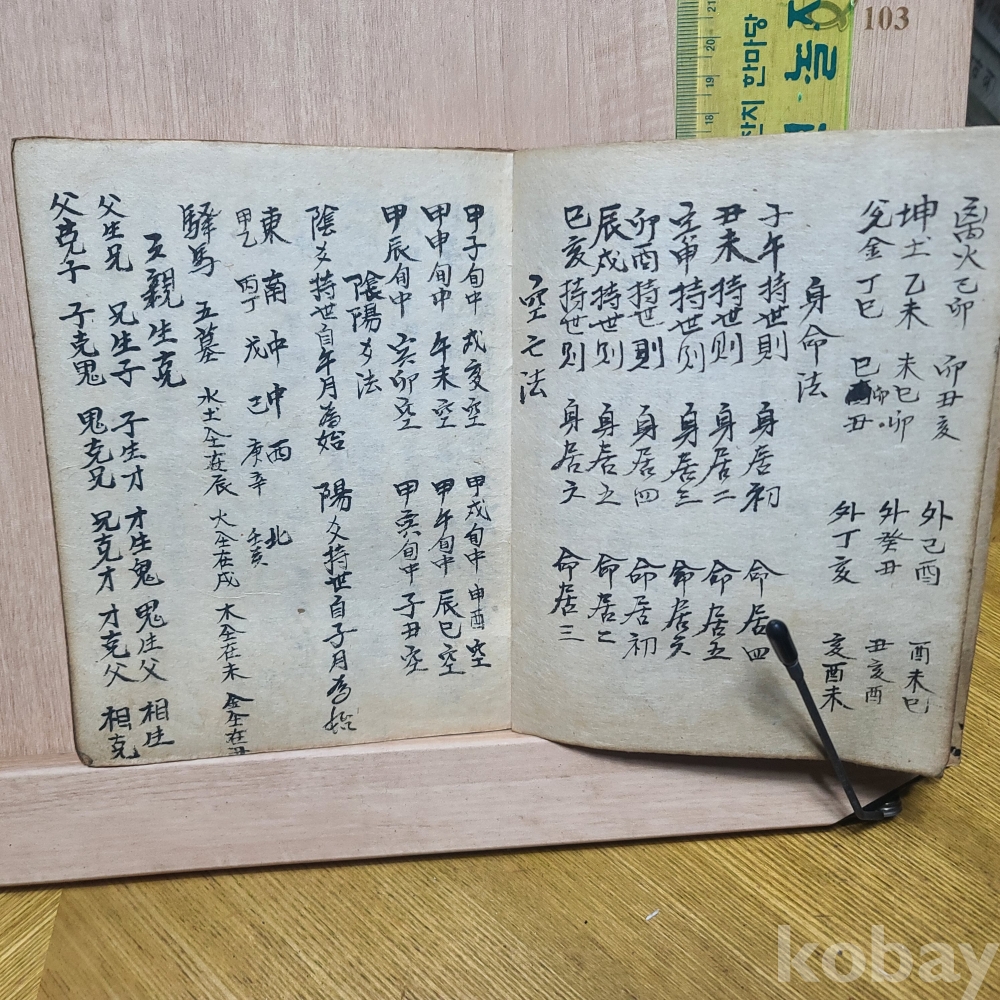 离火己卯 卯丑亥 外己酉 酉未巳
坤土乙未 未巳卯 外癸丑 丑亥酉
兌金丁巳 巳卯丑 外丁亥 亥酉未
身命法
子午持世則 身居初 命居四
丑未持世則 身居二 命居五
寅申持世则 身居三 命居六
卯酉持世則 身居四 命居初
辰戌持世则 身居五 命居二
巳亥持世则 身居六 命居三
空亡法
甲子旬中 戌亥空 甲戌旬中 申酉空
甲申旬中 午未空 甲午旬中 辰巳空
甲辰旬中 寅卯空 甲寅旬中 子丑空
陰陽爻法
陰爻持世自午月為始 陽爻持世自子月為始
東 南 中 中 西 北
甲乙 丙丁 戊 己 庚辛 壬癸
驛馬 五墓 水土全在辰 火全在戌 木全在未 金全在丑
五親生克
父生兄 兄生子 子生才 才生鬼 鬼生父 相生
父克子 子克鬼 鬼克兄 兄克才 才克父 相克
103
21
20
19
18
한마당
놀
kobay